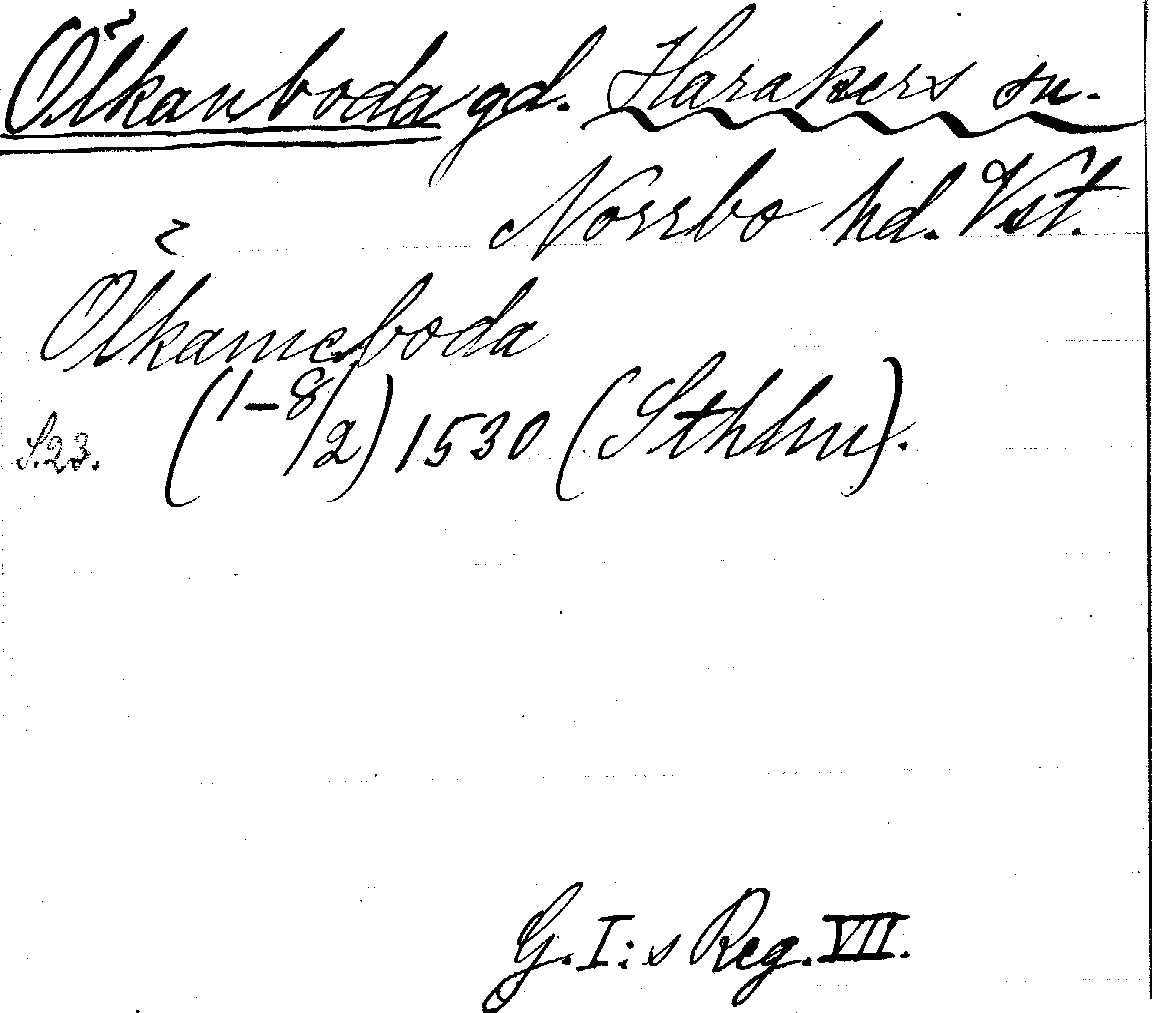 Ölkanboda gd. Harakers sn.
Norrbo hd. Vst.
Ölkanneboda
S.23. (1-8/2) 1530 (Sthlm).
G. I:s Reg. VII.